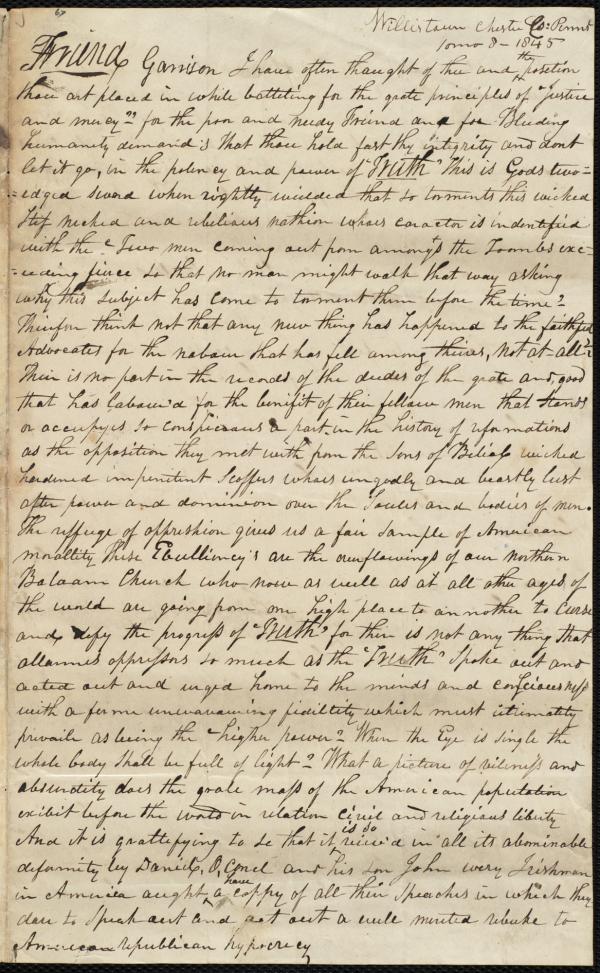 Willistown Chester Co: Penns
10mo 8 - 1845
Friend Garrison I have often thought of thee and the position
thou art placed in while batteling for the grate principles of "Justice
and mercy" for the poor and needy Friend and for Bleeding
humanity demand's that thou hold fast thy integrity and dont
let it go, in the potency and power of "Truth" This is Gods two=
=edged sword when rightly wielded that so torments this wicked
stif necked and rebelious nathion whoes caractor is indentified
with the "Two men coming out from amongs the Toombs exc=
=eeding fierce so that no man might walk that way asking
why this subject has come to torment them before the time"
Therefore think not that any new thing has happened to the faithful
Advocates for the nabour that has fell among thieves, not at all"
Their is no part in the records of the deedes of the grate and good
that has labour'd for the benifit of their fellow men that stands
or occupyes so conspicuous a part in the history of reformations
as the opposition they met with from the Sons of Belial wicked
hardened impenitent Scoffers whoes ungodly and beastly lust
after power and dominion over the Soules and bodies of men.
The reffuge of oppreshion gives us a fair sample of American
morallity These Ebulliency's are the overflowings of our northern
Balaam Church who now as well as at all other ages of
the world are going from one high place to an nother to Curse
and defy the progress of "Truth" for their is not any thing that
allarmes oppressors so much as the "Truth" Spoke out and
acted out and urged home to the minds and consciousness
with a ferme unwavaring fidillity which must ultimatly
prevaile as being the "higher power" When the Eye is single the
whole body shall be full of light" What a picture of vileness and
absurdity does the grate mass of the American population
exibit before the world in relation civil and religious liberty
And it is grattefying to se that it is so view'd in all its abominable
deformity by Daniel O, Conel and his son John every Irishman
in America aught have a coppy of all their Speaches in which they
dare to speak out and act out a well merited rebuke to
American republican hypocrecy